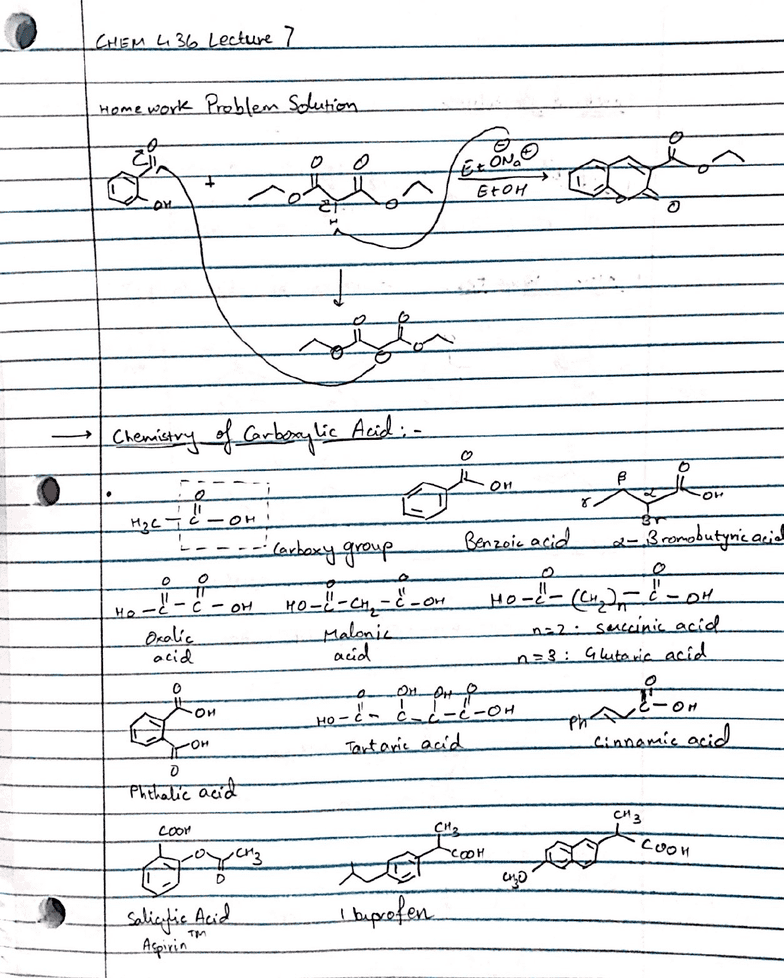 CHEM 436 Lecture 7
Homework Problem Solution
O
OH
+
O O
O O
H
EtO⊖Na⊕
EtOH
O
O
O O
O O
O O
⊖
→ Chemistry of Carboxylic Acid :-
O
H3C - C - OH
Carboxy group
O
OH
Benzoic acid
O
γ β α OH
Br
α- Bromobutyric acid
O O
HO - C - C - OH
Oxalic
acid
O O
HO - C - CH2 - C - OH
Malonic
acid
O O
HO - C - (CH2)n - C - OH
n=2 : succinic acid
n=3 : Glutaric acid
O
OH
OH
O
Phthalic acid
O OH OH O
HO - C - C - C - C - OH
Tartaric acid
O
Ph C - OH
Cinnamic acid
COOH
O CH3
O
Salicylic Acid
Aspirin TM
CH3
COOH
Ibuprofen
CH3
COOH
CH3O